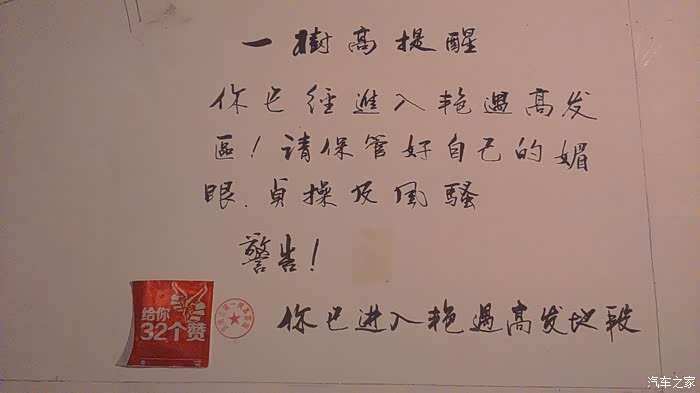 一樹高提醒
你已經進入艳遇高发
區!請保管好自己的媚
眼.貞操及風騷
警告!
你已进入艳遇高发地段
给你
32个赞
汽车之家